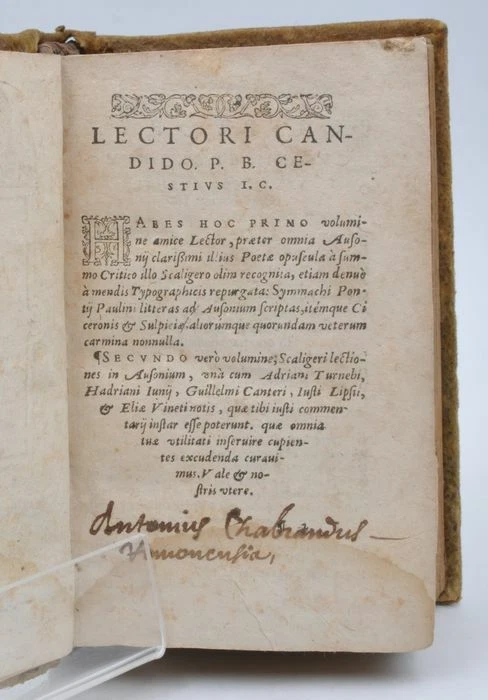 LECTORI CAN-
DIDO. P. B. CE-
STIVS I. C.
HABES HOC PRIMO volumi-
ne amice Lector, præter omnia Auso-
nij clarissimi illius Poetæ opuscula à sum-
mo Critico illo Scaligero olim recognita, etiam denuò
à mendis Typographicis repurgata: Symmachi Pon-
tij Paulini litteras ad Ausonium scriptas, itémque Ci
ceronis & Sulpiciæ, aliorúmque quorundam veterum
carmina nonnulla.
¶SECVNDO verò volumine, Scaligeri lectio-
nes in Ausonium, vnà cum Adriani Turnebi,
Hadriani Iunij, Guillelmi Canteri, Iusti Lipsii,
& Eliæ Vineti notis, quæ tibi iusti commen-
tarij instar esse poterunt. quæ omnia
tuæ vtilitati inseruire cupien-
tes excudenda curaui-
mus. Vale & no-
stris vtere.
Antonius Chabrandus